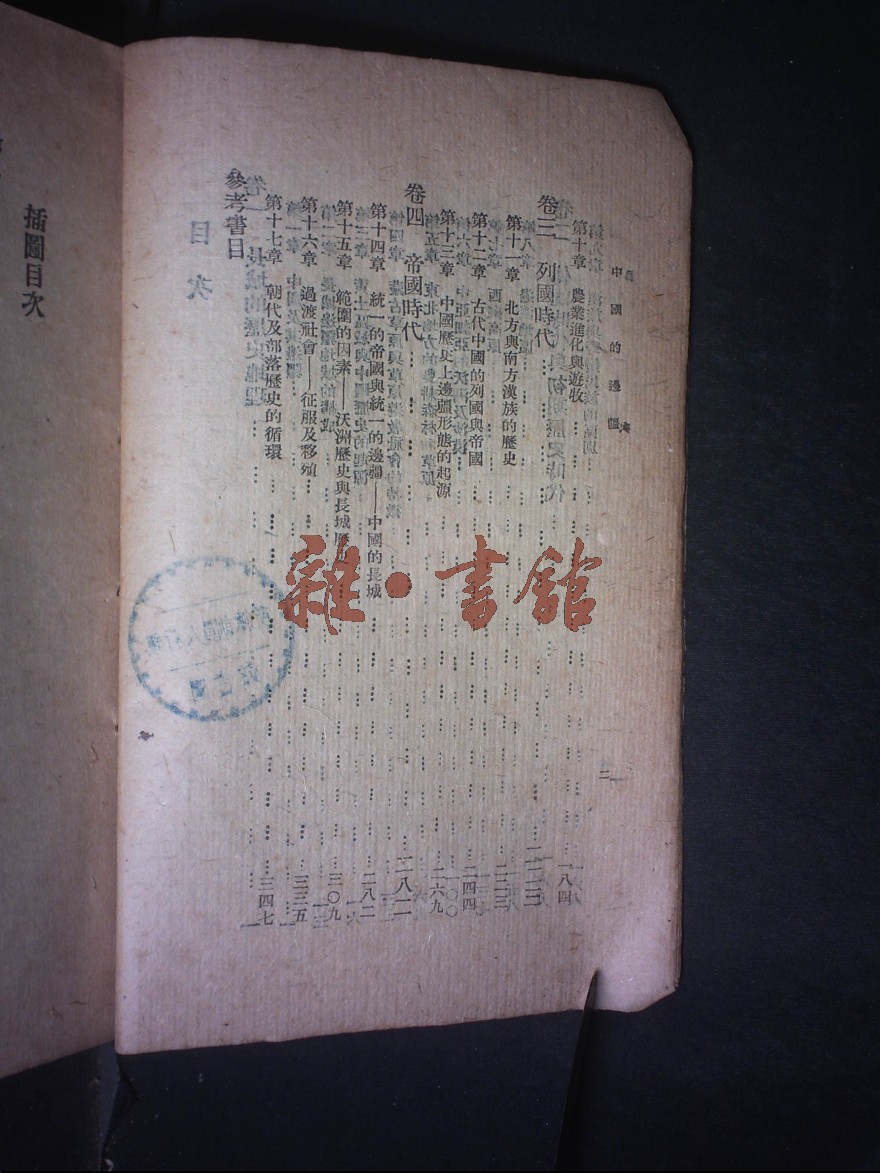 中國的邊疆
二
第十章 農業進化與遊牧 一八四
卷三 列國時代 二二三
第十一章 北方與南方漢族的歷史 二二三
第十二章 古代中國的列國與帝國 二四四
第十三章 中國歷史上邊疆形態的起源 二六九
卷四 帝國時代 二八二
第十四章 統一的帝國與統一的邊疆——中國的長城 二八二
第十五章 範圍的因素——沃洲歷史與長城歷史 三〇九
第十六章 過渡社會——征服及移殖 三三五
第十七章 朝代及部落歷史的循環 三四七
參考書目
插圖目次
雜·書館